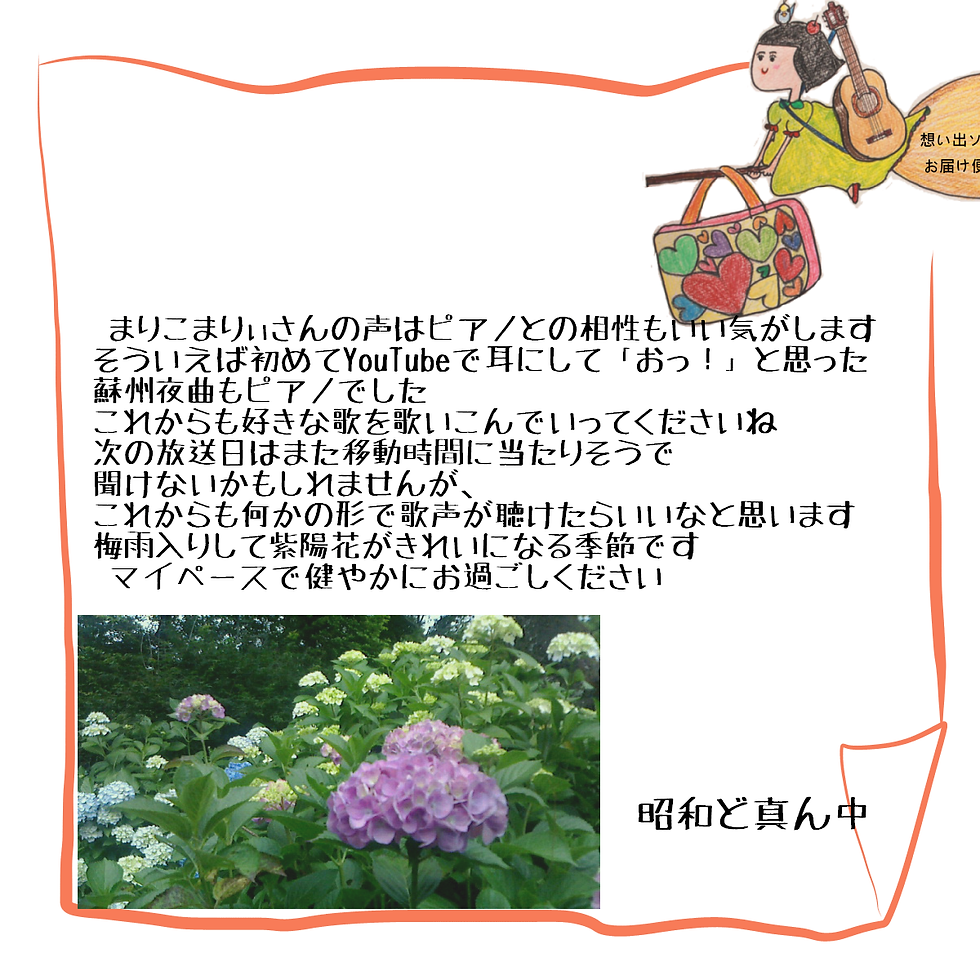 想い出ソ
お届け便
まりこまりぃさんの声はピアノとの相性もいい気がします
そういえば初めてYouTubeで耳にして「おっ！」と思った
蘇州夜曲もピアノでした
これからも好きな歌を歌いこんでいってくださいね
次の放送日はまた移動時間に当たりそうで
聞けないかもしれませんが、
これからも何かの形で歌声が聴けたらいいなと思います
梅雨入りして紫陽花がきれいになる季節です
マイペースで健やかにお過ごしください
昭和ど真ん中